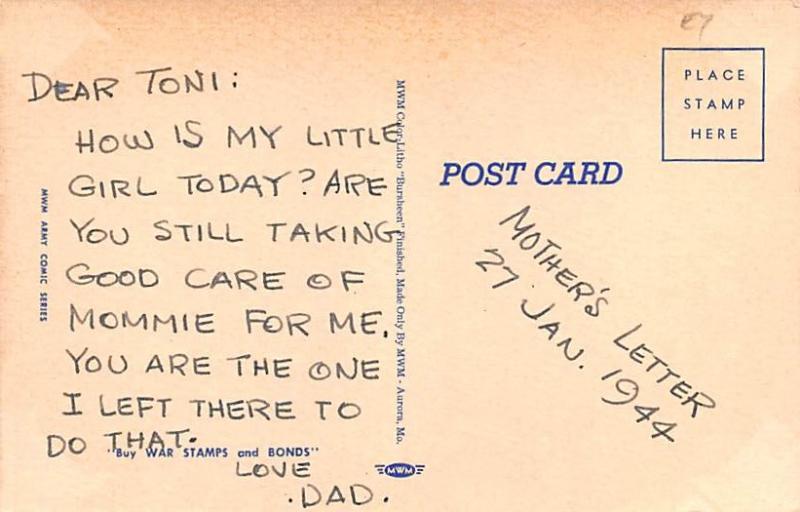 DEAR TONI:
HOW IS MY LITTLE
GIRL TODAY? ARE
YOU STILL TAKING
GOOD CARE OF
MOMMIE FOR ME.
YOU ARE THE ONE
I LEFT THERE TO
DO THAT.
LOVE
.DAD.
"Buy WAR STAMPS and BONDS"
MWM ARMY COMIC SERIES
MWM Color-Litho "Bursheen" Finished, Made Only By MWM - Aurora, Mo.
MWM
POST CARD
PLACE
STAMP
HERE
MOTHER'S LETTER
27 JAN. 1944